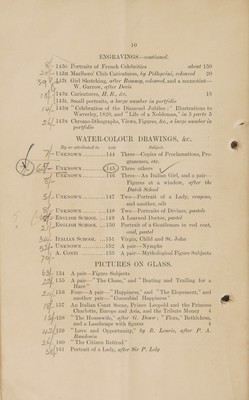 10
ENGRAVINGS—continued.
143c Portraits of French Celebrities about 150
143D Marlboro' Club Caricatures, by Pellegrini, coloured 20
143E Girl Sketching, after Romney, coloured, and a mezzotint—
W. Garrow, after Davis
143F Caricatures, H. B., &c. 15
143G Small portraits, a large number in portfolio
143H "Celebration of the Diamond Jubilee;" Illustrations to
Waverley, 1820, and "Life of a Nobleman," in 5 parts 5
143I Chromo-lithographs, Views, Figures, &c., a large number in
portfolio
WATER-COLOUR DRAWINGS, &c.
By or attributed to. LOT Subject
UNKNOWN 144 Three—Copies of Proclamations, Pro-
grammes, etc.
UNKNOWN 145 Three others
UNKNOWN 146 Three—An Italian Girl, and a pair—
Figures at a window, after the
Dutch School
UNKNOWN 147 Two—Portrait of a Lady, vespons,
and another, oils
UNKNOWN 148 Two—Portraits of Divines, pastels
ENGLISH SCHOOL 149 A Learned Doctor, pastel
ENGLISH SCHOOL 150 Portrait of a Gentleman in red coat,
oval, pastel
ITALIAN SCHOOL 151 Virgin, Child and St. John
UNKNOWN 152 A pair—Nymphs
A. CONTI 153 A pair—Mythological Figure Subjects
PICTURES ON GLASS.
154 A pair—Figure Subjects
155 A pair—"The Chase," and "Routing and Trailing for a
Hare"
156 Four—A pair—"Happiness," and "The Elopement," and
another pair—"Connubial Happiness"
157 An Italian Coast Scene, Prince Leopold and the Princess
Charlotte, Europe and Asia, and the Tribute Money 4
158 "The Housewife," after G. Douw; "Flora," Bethlehem,
and a Landscape with figures 4
159 "Love and Opportunity," by B. Lewis, after P. A.
160 "The Citizen Retired"
161 Portrait of a Lady, after Sir P. Lely